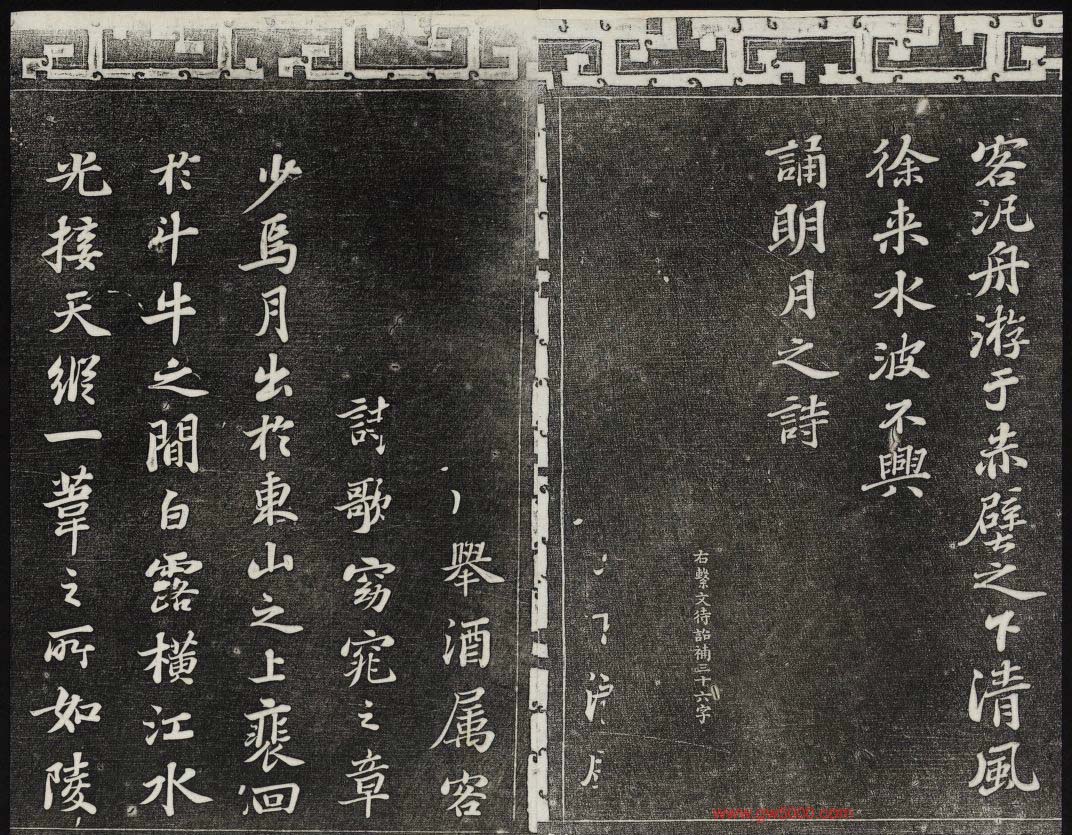 客汎舟游于赤壁之下清風
徐来水波不興
誦明月之詩
右繫文待詔補三十六字
舉酒属客
詩歌窈窕之章
少焉月出於東山之上裴洄
於斗牛之間白露橫江水
光接天縱一葦之所如陵